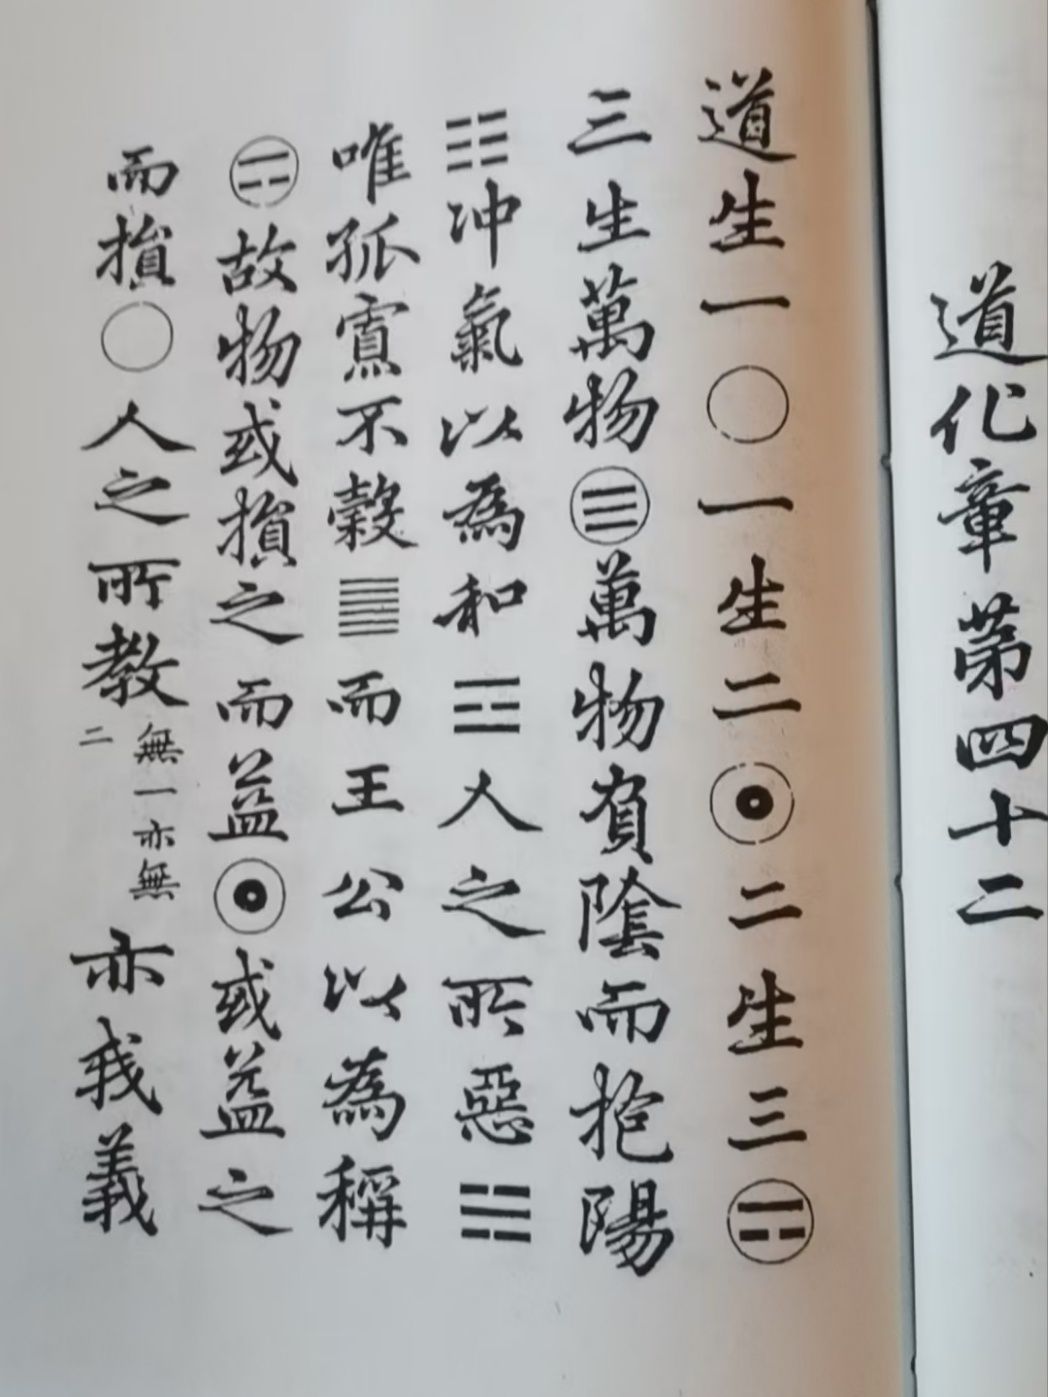 道化章第四十二
道生一〇一生二☉二生三⚍
三生萬物☰萬物負陰而抱陽
☷冲氣以為和☲人之所惡☵
唯孤寡不穀䷀而王公以為稱
⚍故物或損之而益☉或益之
而損〇人之所教無一亦無二亦我義